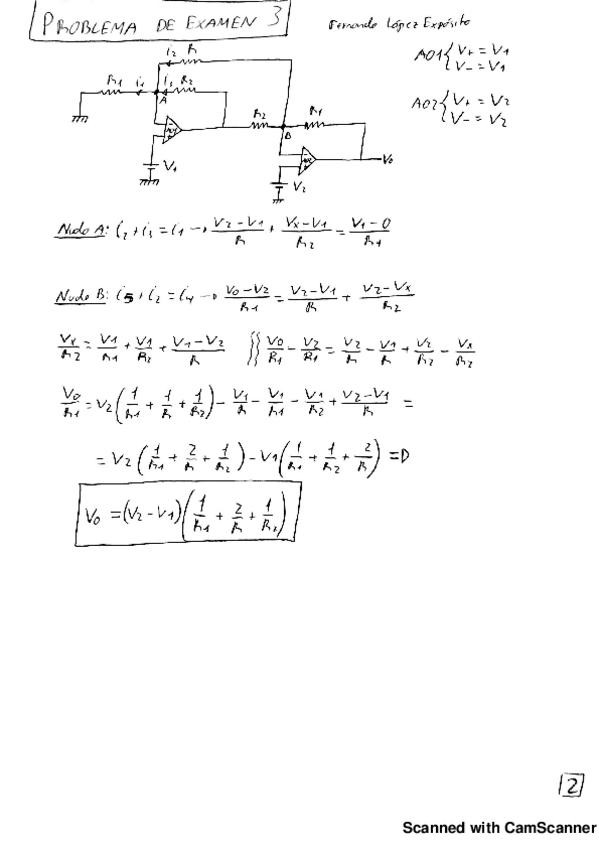 PROBLEMA DE EXAMEN 3
Fernando López Expósito
AO1 { V+ = V1
V- = V1
AO2 { V+ = V2
V- = V2
i2 R
R1 i1 i3 R2
A
R2 R1
B
V0
V1
V2
Nudo A: i2 + i3 = i1 → (V2 - V1)/R + (Vx - V1)/R2 = (V1 - 0)/R1
Nudo B: i5 + i2 = i4 → (V0 - V2)/R1 = (V2 - V1)/R + (V2 - Vx)/R2
Vx/R2 = V1/R1 + V1/R2 + (V1 - V2)/R ∫∫∫ V0/R1 - V2/R1 = V2/R - V1/R + V2/R2 - Vx/R2
V0/R1 = V2 (1/R1 + 1/R + 1/R2) - V1/R - V1/R1 - V1/R2 + (V2 - V1)/R =
= V2 (1/R1 + 2/R + 1/R2) - V1 (1/R1 + 1/R2 + 2/R) =D
V0 = (V2 - V1) (1/R1 + 2/R + 1/R2)
2
Scanned with CamScanner